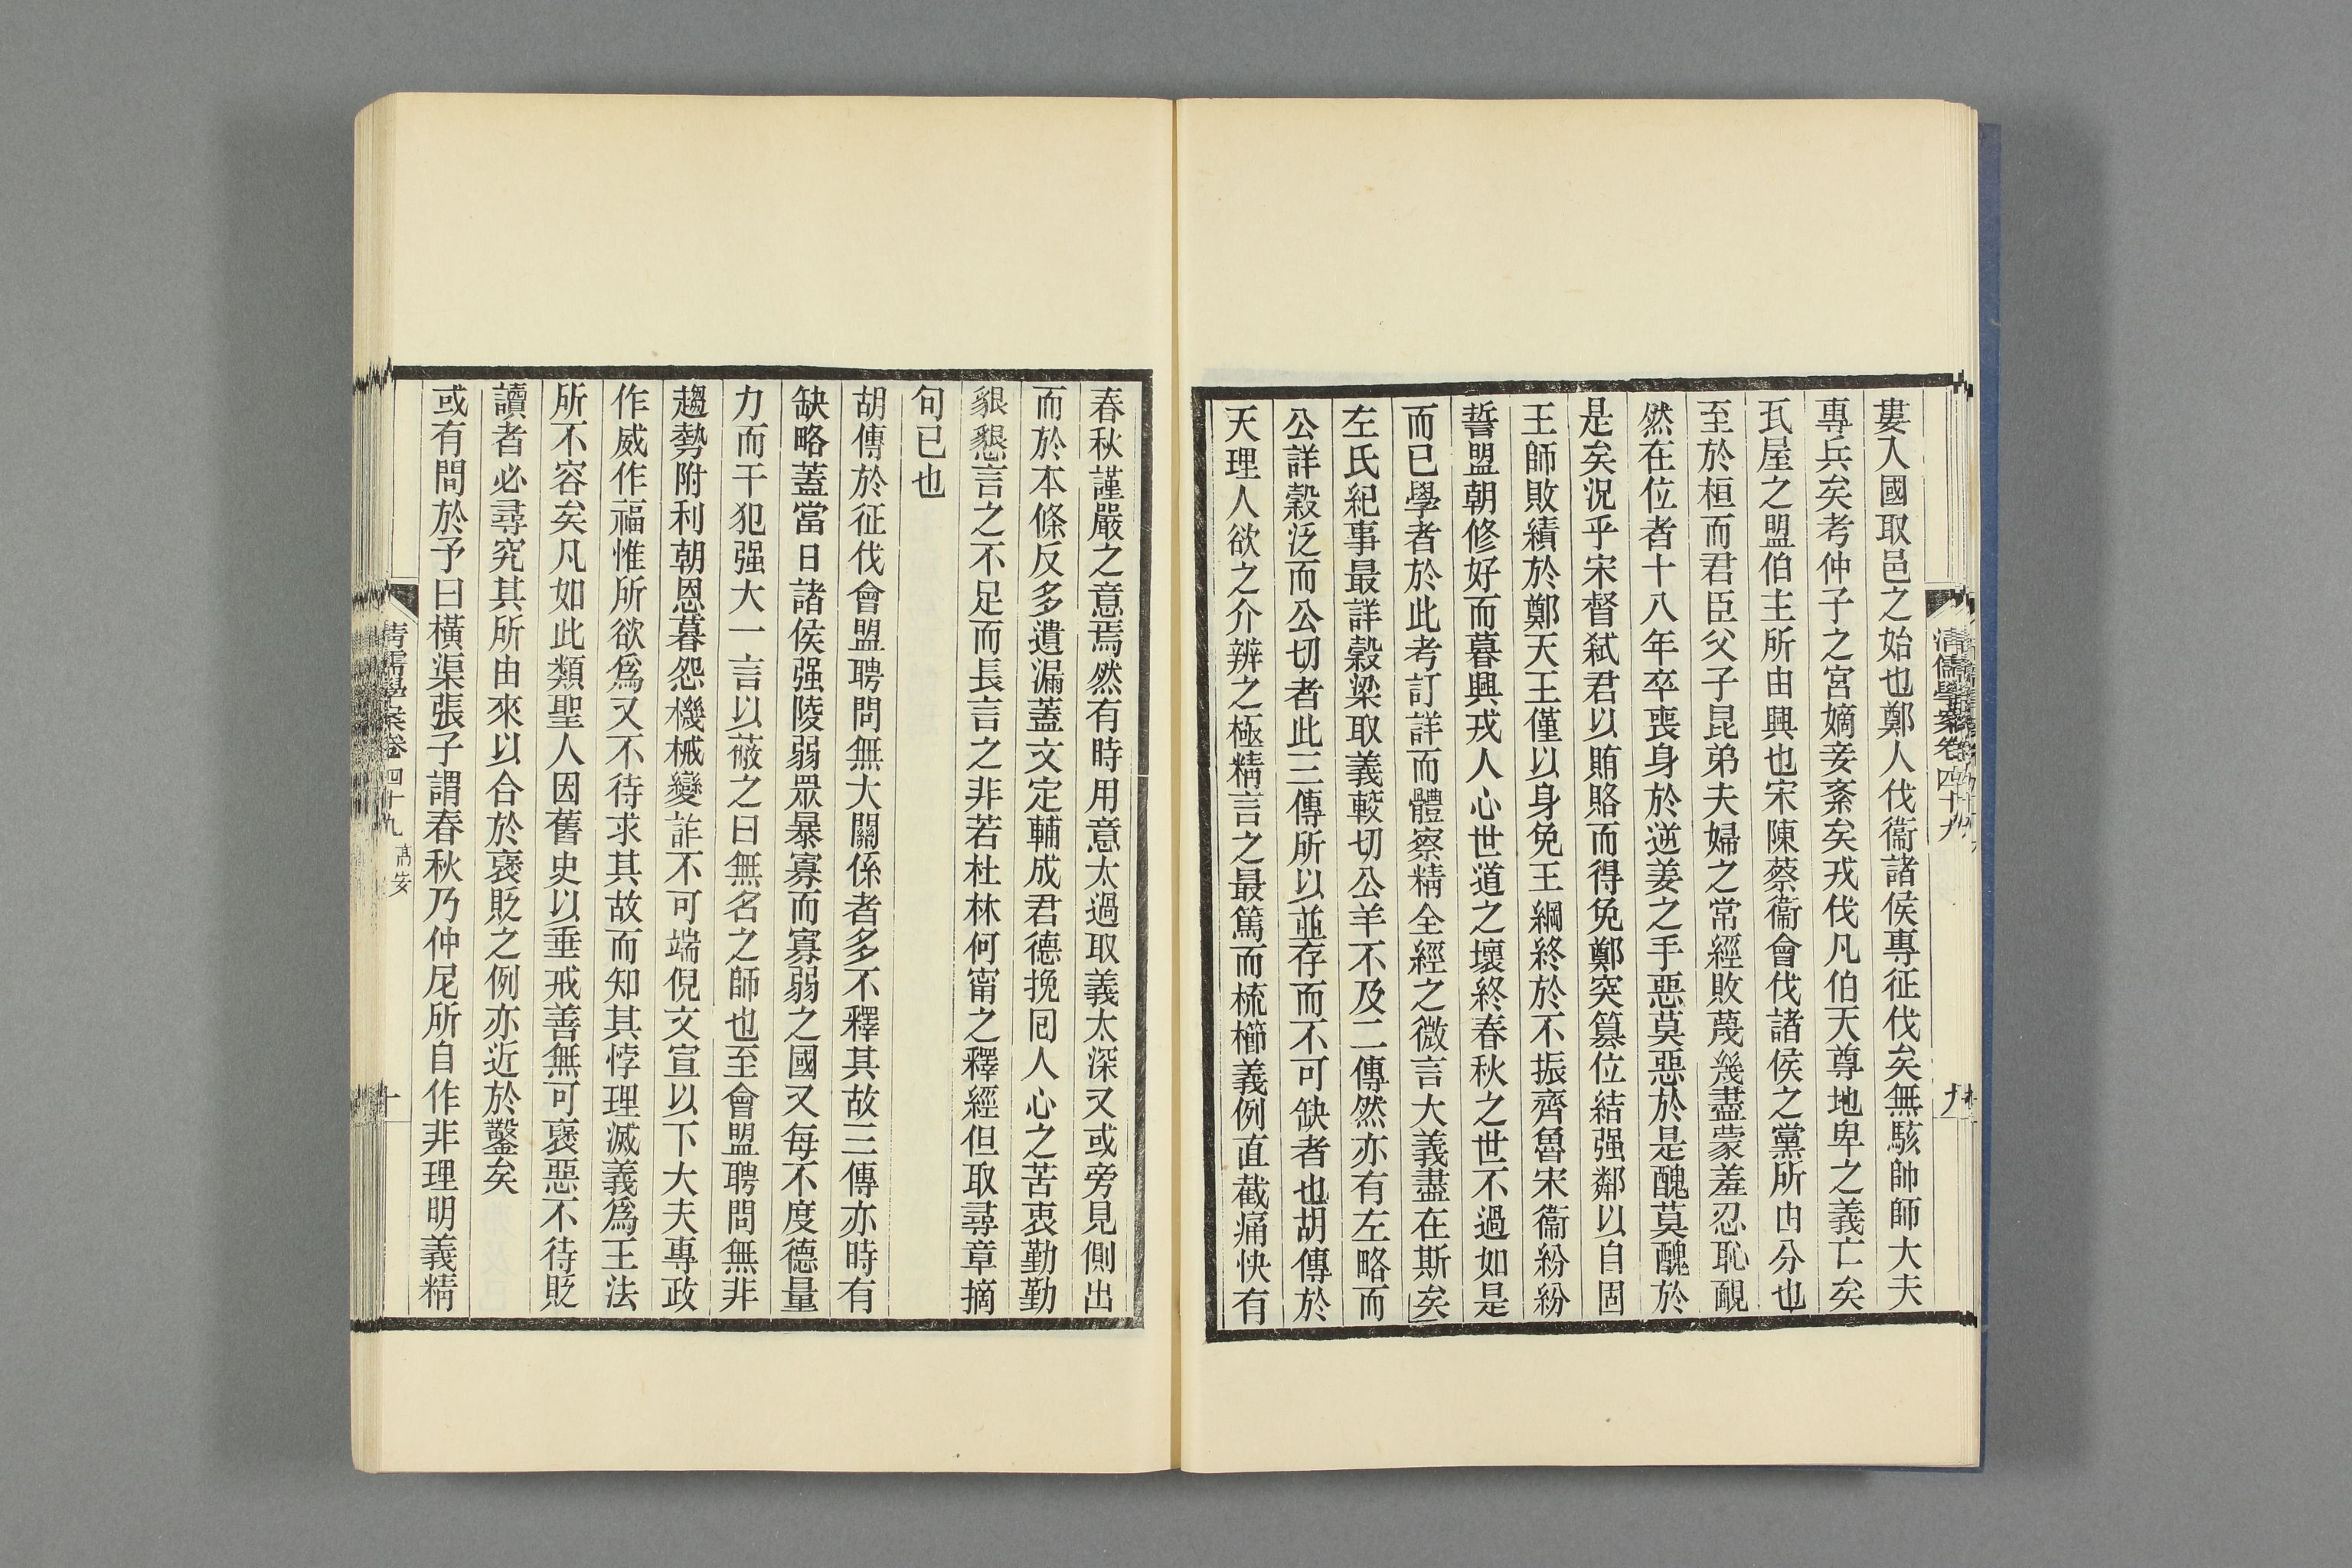 婁入國取邑之始也鄭人伐衞諸侯專征伐矣無駭帥師大夫
專兵矣考仲子之宮嫡妾紊矣戎伐凡伯天尊地卑之義亡矣
瓦屋之盟伯主所由興也宋陳蔡衞會伐諸侯之黨所由分也
至於桓而君臣父子昆弟夫婦之常經敗蔑幾盡蒙羞忍恥靦
然在位者十八年卒喪身於逆姜之手惡莫惡於是醜莫醜於
是矣況乎宋督弑君以賄賂而得免鄭突篡位結强鄰以自固
王師敗績於鄭天王僅以身免王綱終於不振齊魯宋衞紛紛
誓盟朝修好而暮興戎人心世道之壞終春秋之世不過如是
而已學者於此考訂詳而體察精全經之微言大義盡在斯矣
左氏紀事最詳穀梁取義較切公羊不及二傳然亦有左略而
公詳穀泛而公切者此三傳所以並存而不可缺者也胡傳於
天理人欲之介辨之極精言之最篤而梳櫛義例直截痛快有
清儒學案卷四十九
九
春秋謹嚴之意焉然有時用意太過取義太深又或旁見側出
而於本條反多遺漏蓋文定輔成君德挽回人心之苦衷勤勤
貇懇言之不足而長言之非若杜林何甯之釋經但取尋章摘
句已也
胡傳於征伐會盟聘問無大關係者多不釋其故三傳亦時有
缺略蓋當日諸侯强陵弱眾暴寡而寡弱之國又每不度德量
力而干犯强大一言以蔽之曰無名之師也至會盟聘問無非
趨勢附利朝恩暮怨機械變詐不可端倪文宣以下大夫專政
作威作福惟所欲爲又不待求其故而知其悖理滅義爲王法
所不容矣凡如此類聖人因舊史以垂戒善無可襃惡不待貶
讀者必尋究其所由來以合於襃貶之例亦近於鑿矣
或有問於予曰橫渠張子謂春秋乃仲尼所自作非理明義精
清儒學案卷四十九 高安
十